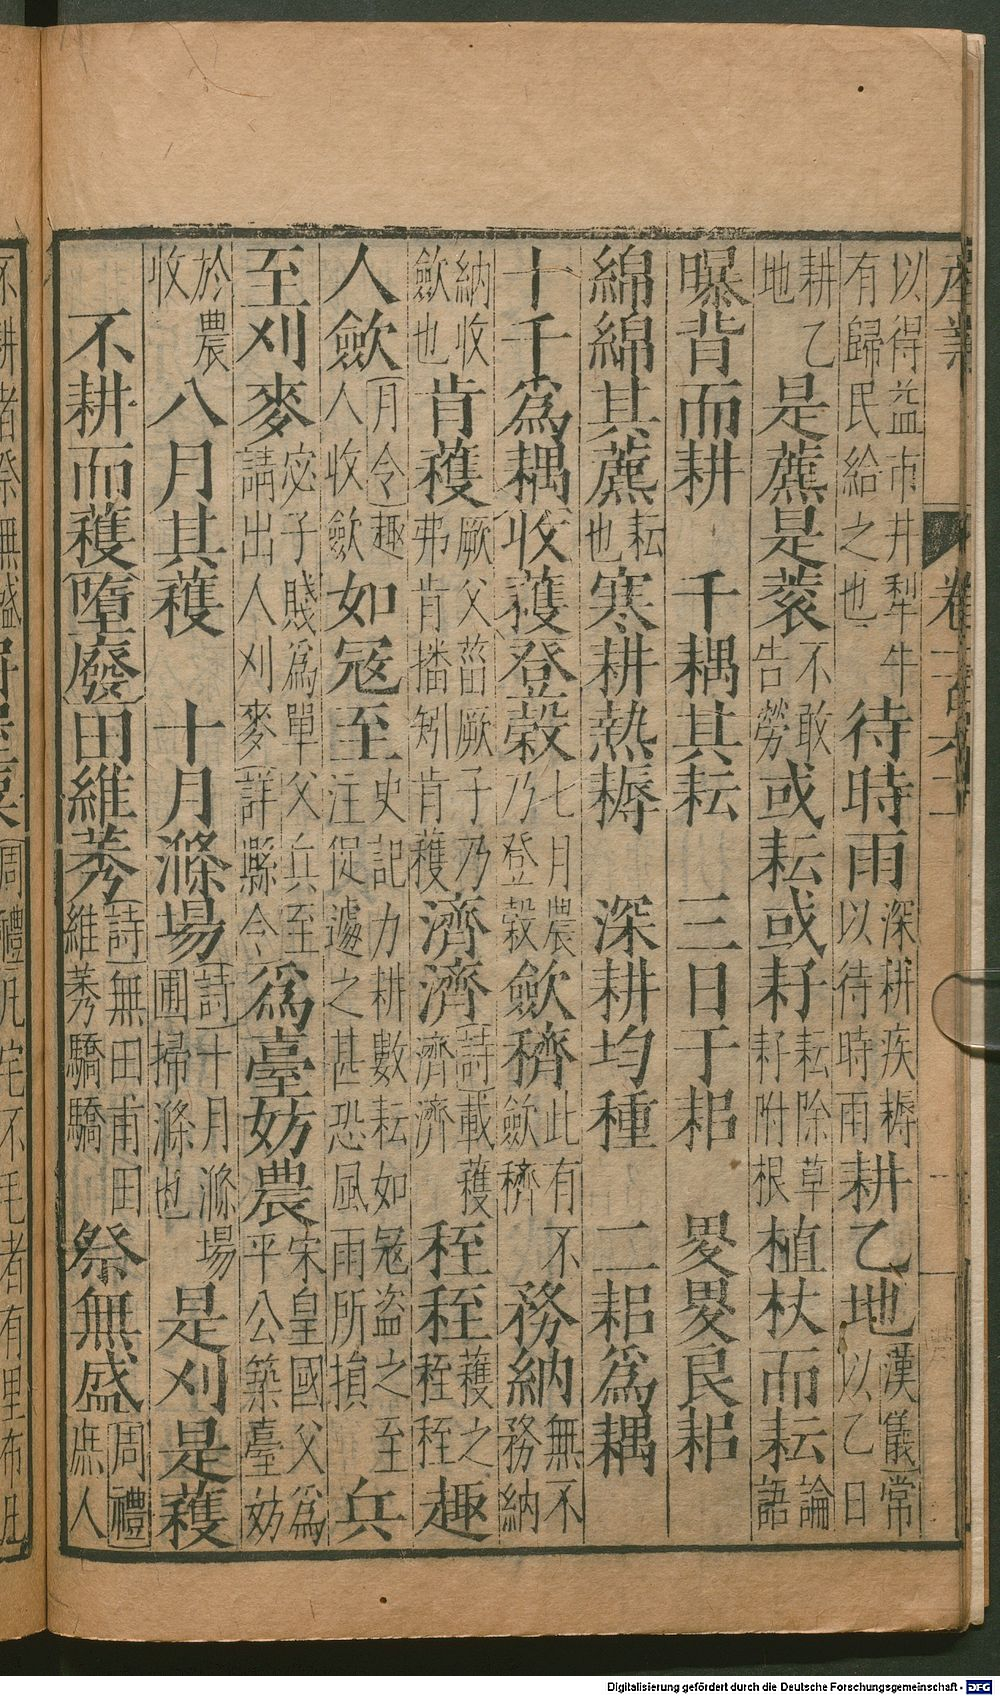 產業 卷一百六十一
以得益市井犁牛
有歸民給之也
待時雨
深耕疾耨
以待時雨
耕乙地
漢儀常
以乙日
耕乙
地
是藨是蔉
不敢
告勞
或耘或耔
耘除草
耔附根
植杖而耘
論
語
曝背而耕 千耦其耘 三日于耜 畟畟良耜
綿綿其藨
耘
也
寒耕熱耨 深耕均種 二耜為耦
十千為耦
收穫登穀
七月農
乃登穀
歛穧
此有不
歛穧
務納
無不
務納
納收
歛也
肯穫
厥父菑厥子乃
弗肯播矧肯穫
濟濟
詩載穫
濟濟
秷秷
穫之
秷秷
趣
人歛
月令趣
人收歛
如寇至
史記力耕數耘如寇盜之至
注促遽之甚恐風雨所損
兵
至刈麥
宓子賤為單父兵至
請出人刈麥詳縣令
為臺妨農
宋皇國父為
平公築臺妨
於農
收
八月其穫 十月滌場
詩十月滌場
圃掃滌也
是刈是穫
不耕而穫
墮廢
田維莠
詩無田甫田
維莠驕驕
祭無盛
周禮
庶人
不耕者祭無盛
周禮凡宅不毛者有里布
Digitalisierung gefördert durch die Deutsche Forschungsgemeinschaft - DFG